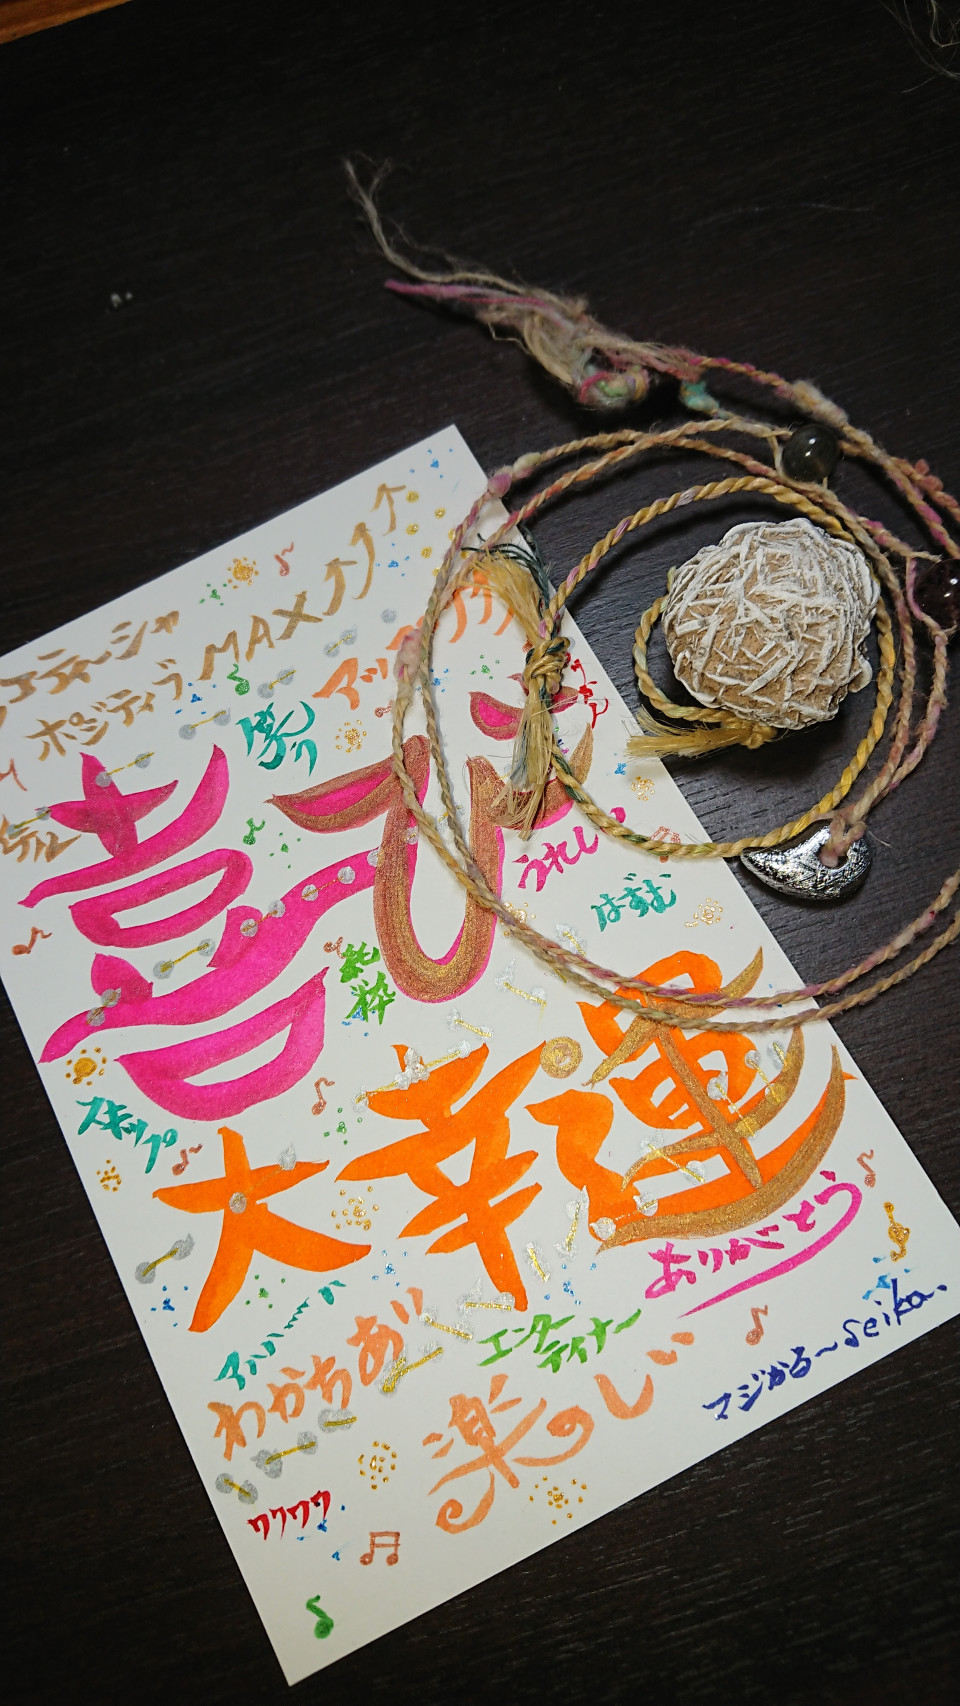 ポジティブMAX↑↑↑
喜び
うれしい
はずむ
純粋
スキップ
大幸運
ありがとう
アハハ
わかちあい
エンター
テイナー
楽しい
マジかる〜seika.
ワクワク